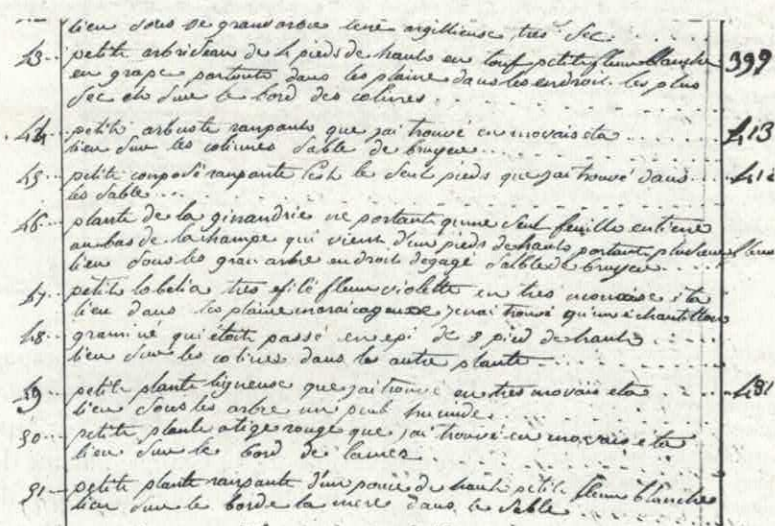 lieu sous de grans arbre terre argillieuse tres sec
43. petite arbrisseau de 4 pieds de hauts en touf petite fleur blanche 399
en grape portante dans les plaine dans les endroit les plus
sec et sur le bord des colines.
44. petit arbuste rampante que jai trouvé en movais eta 413
lieu sur les colinnes sable de bruyer
45. petite composé rampante cest le seul pieds que jai trouvé dans
les sable
46. plante de la ginandrie ne portante qu'une seul feuille entiere
au bas de la hampe qui vient d'un pieds de hauts portant plusieur fleur
lieu sous les gran arbre endroit degagé sable de bruyer
47. petite lobelia tres efilé fleur violette en tres movaise eta
lieu dans les plaine marécageuse jenai trouvé qu'un echantillons
48. graminé qui étoit passé en epi de 8 pied de hauts
lieu sur les colines dans les autre plante
49. petite plante ligneuse que jai trouvé en tres movais eta 481
lieu sous les arbre un peut humide
50. petite plante a tige rouge que jai trouvé en movais eta
lieu sur le bord de la mer
51. petite plante rampante d'un pouce de haute petite fleur blanche
lieu sur le borde la mere dans le sable